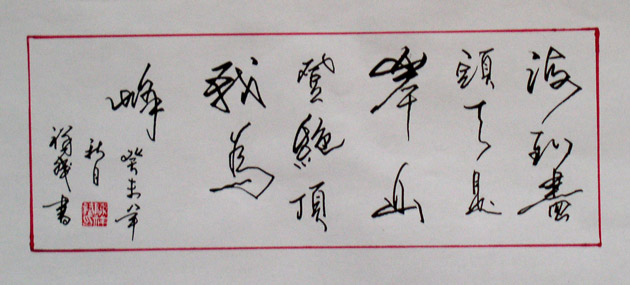 海到盡
頭天是
岸山
登絕頂
我為
峰
癸未年
秋月
書